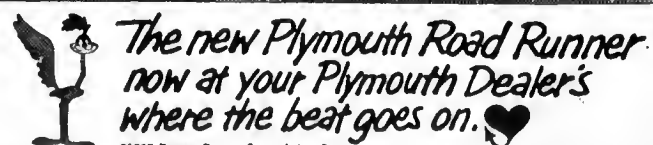 The new Plymouth Road Runner
now at your Plymouth Dealer's
where the beat goes on.